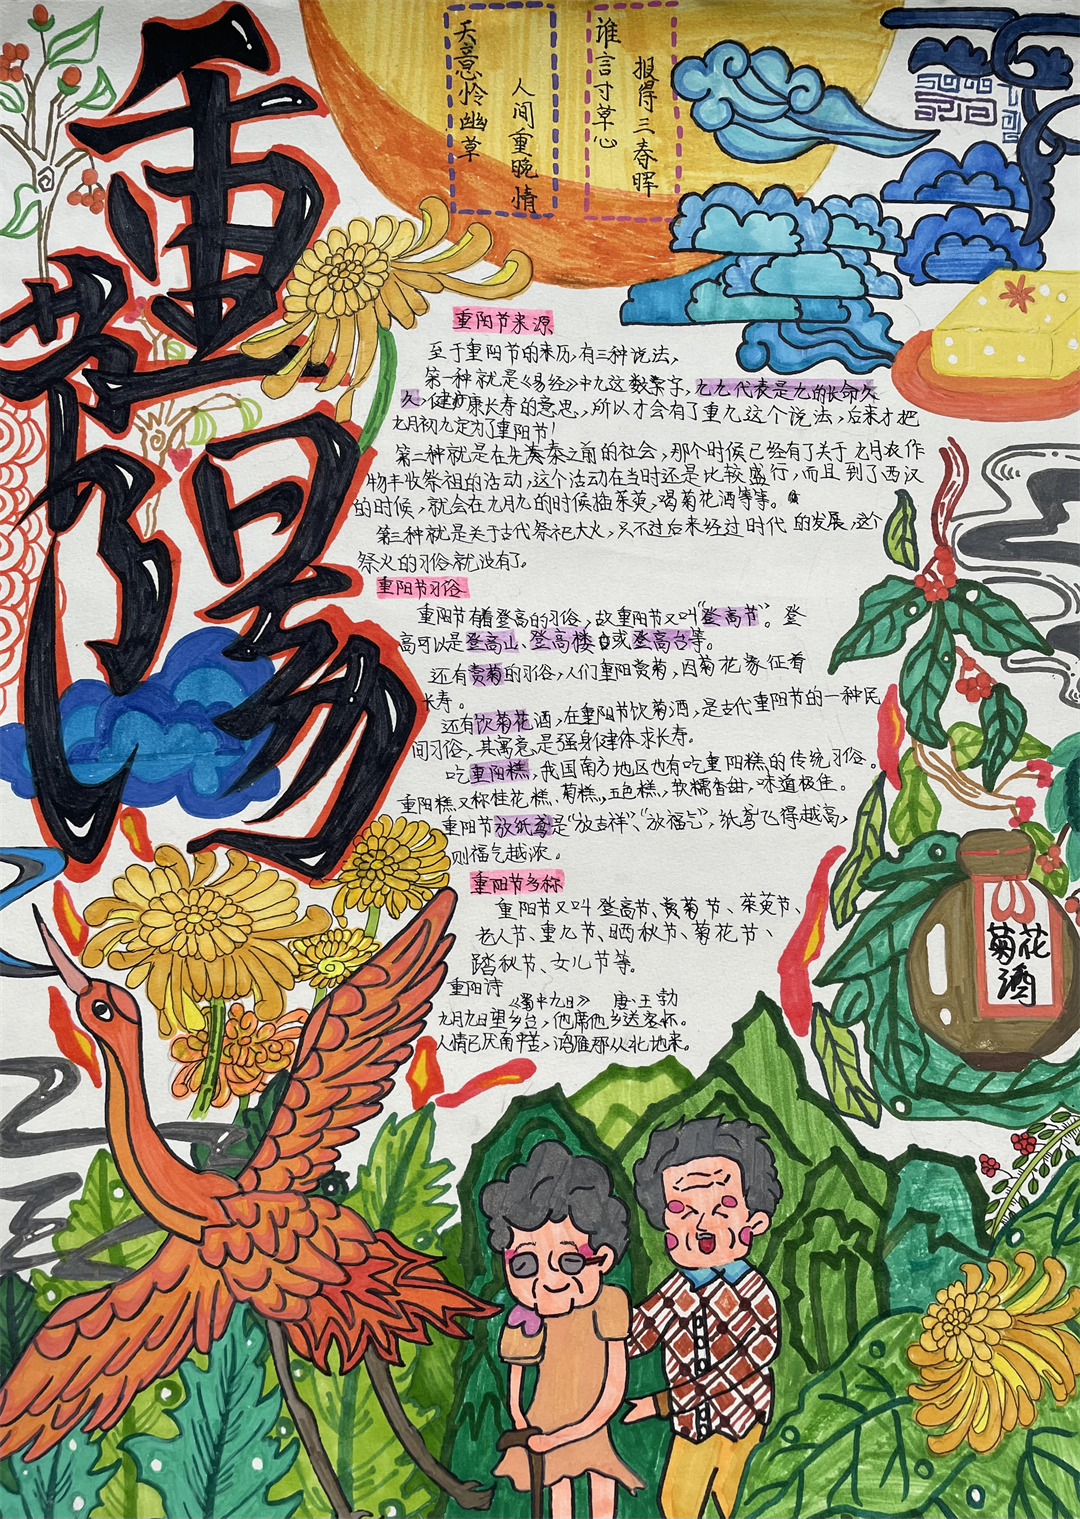 重阳节
天意怜幽草
人间重晚情
谁言寸草心
报得三春晖
重阳节来源
至于重阳节的来历,有三种说法,
第一种就是《易经》中九这数字,九九代表是九的长命久
久,健康长寿的意思,所以才会有了重九这个说法,后来才把
九月初九定为了重阳节!
第二种就是在先秦之前的社会,那个时候已经有了关于九月农作
物丰收祭祖的活动,这个活动在当时还是比较盛行,而且到了西汉
的时候,就会在九月九的时候插茱萸,喝菊花酒等等。
第三种就是关于古代祭祀大火,只不过后来经过时代的发展,这个
祭火的习俗就没有了。
重阳节习俗
重阳节有着登高的习俗,故重阳节又叫“登高节”。登
高可以是登高山、登高楼或登高台等。
还有赏菊的习俗,人们重阳赏菊,因菊花象征着
长寿。
还有饮菊花酒,在重阳节饮菊酒,是古代重阳节的一种民
间习俗,其寓意是强身健体求长寿。
吃重阳糕,我国南方地区也有吃重阳糕的传统习俗。
重阳糕又称桂花糕、菊糕,五色糕,软糯香甜,味道极佳。
重阳节放纸鸢是“放吉祥”、“放福气”,纸鸢飞得越高,
则福气越浓。
重阳节名称
重阳节又叫登高节、赏菊节、茱萸节、
老人节、重九节、晒秋节、菊花节、
踏秋节、女儿节等。
重阳诗
《蜀中九日》 唐·王勃
九月九日望乡台,他席他乡送客杯。
人情已厌南中苦,鸿雁那从北地来。
菊花
酒